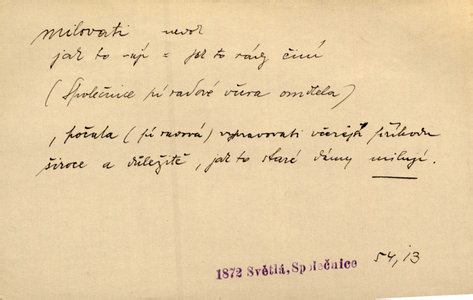 milovati nedok
jak to -ují = jak to rády činí
(Společnice pí radové včera omdlela)
, počala (pí radová) vypravovati včerejší příhodu
široce a důležitě, jak to staré dámy milují.
1872 Světlá, Společnice 54,13